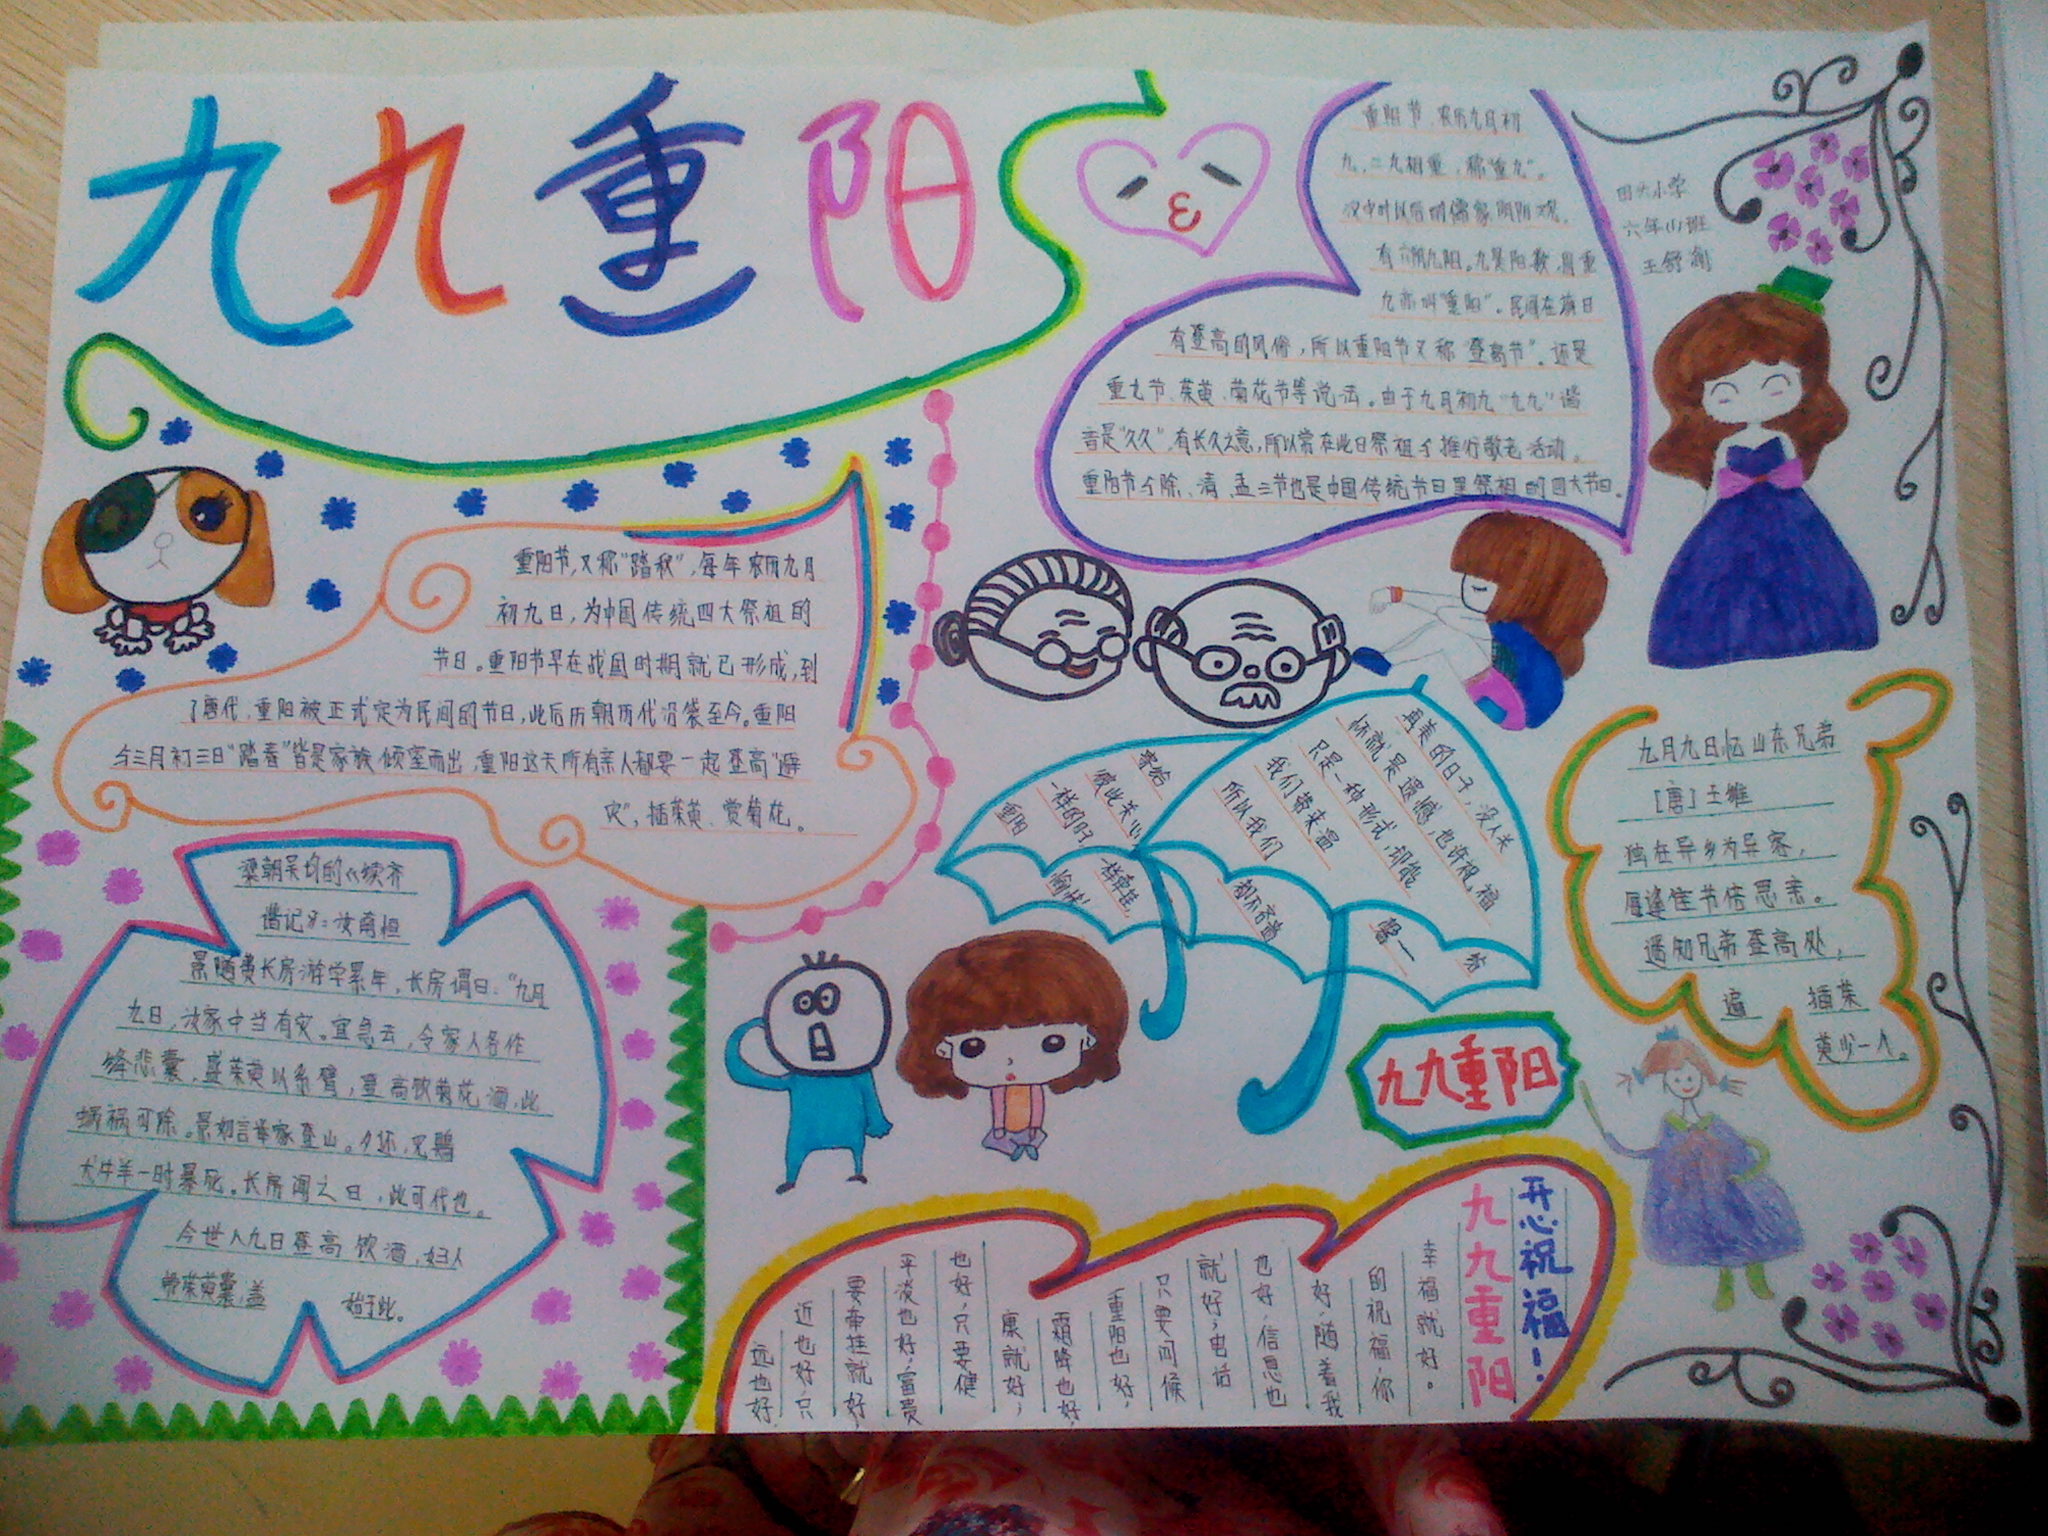 九九重阳
重阳节,农历九月初
九,二九相重,称"重九"。
汉中叶以后的儒家阴阳观,
有六阴九阳。九是阳数,固重
九亦叫"重阳"。民间在该日
有登高的风俗,所以重阳节又称"登高节"。还是
重九节、茱萸、菊花节等说法。由于九月初九"九九"谐
音是"久久",有长久之意,所以常在此日祭祖与推行敬老活动。
重阳节与除、清、盂三节也是中国传统节日里祭祖的四大节日。
田头小学
六年(1)班
王舒
重阳节,又称"踏秋",每年农历九月
初九日,为中国传统四大祭祖的
节日。重阳节早在战国时期就已形成,到
了唐代,重阳被正式定为民间的节日,此后历朝历代沿袭至今。重阳
与三月初三日"踏春"皆是家族倾室而出,重阳这天所有亲人都要一起登高"避
灾",插茱萸、赏菊花。
梁朝吴均的《续齐
谐记》:汝南桓
景随费长房游学累年,长房谓曰:"九月
九日,汝家中当有灾。宜急去,令家人各作
绛囊,盛茱萸以系臂,登高饮菊花酒,此
祸可除。景如言举家登山。夕还,见鸡
犬牛羊一时暴死。长房闻之曰,此可代也。
今世人九日登高饮酒,妇人
带茱萸囊,盖
始于此。
寄给
彼此关心
一样的日子
重阳
一样牵挂,
愉快!
再美的日子,没人关
怀就是遗憾,也许祝福
只是一种形式,却能
我们带来温
所以我们
都不吝啬
馨一
给
九月九日忆山东兄弟
[唐]王维
独在异乡为异客,
每逢佳节倍思亲。
遥知兄弟登高处,
遍 插茱
萸少一人。
九九重阳
开心祝福!
九九重阳
远也好,
近也好,只
要牵挂就好,
平淡也好,富贵
也好,只要健
康就好;
霜降也好,
重阳也好,
只要问候
就好;电话
也好,信息也
好,随着我
的祝福,你
幸福就好。